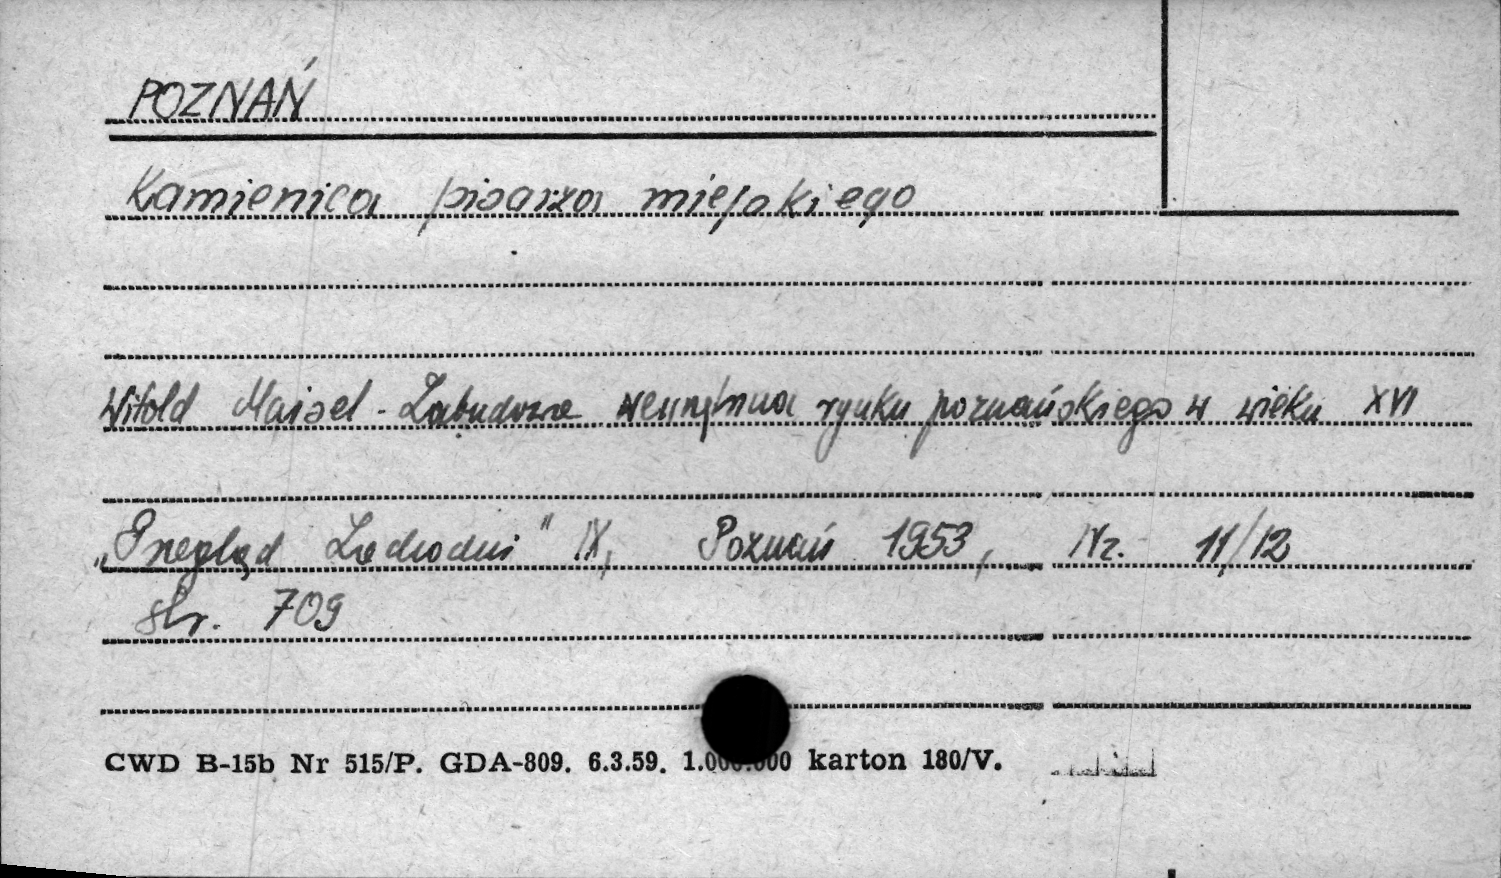 POZNAŃ
Kamienica pisarza miejskiego
Witold Maisel - Zabudowa wewnętrzna rynku poznańskiego w wieku XVI
„Przegląd Zachodni" IX, Poznań 1953, Nr. 11/12
str. 709
CWD B-15b Nr 515/P. GDA-809. 6.3.59. 1.000.000 karton 180/V.